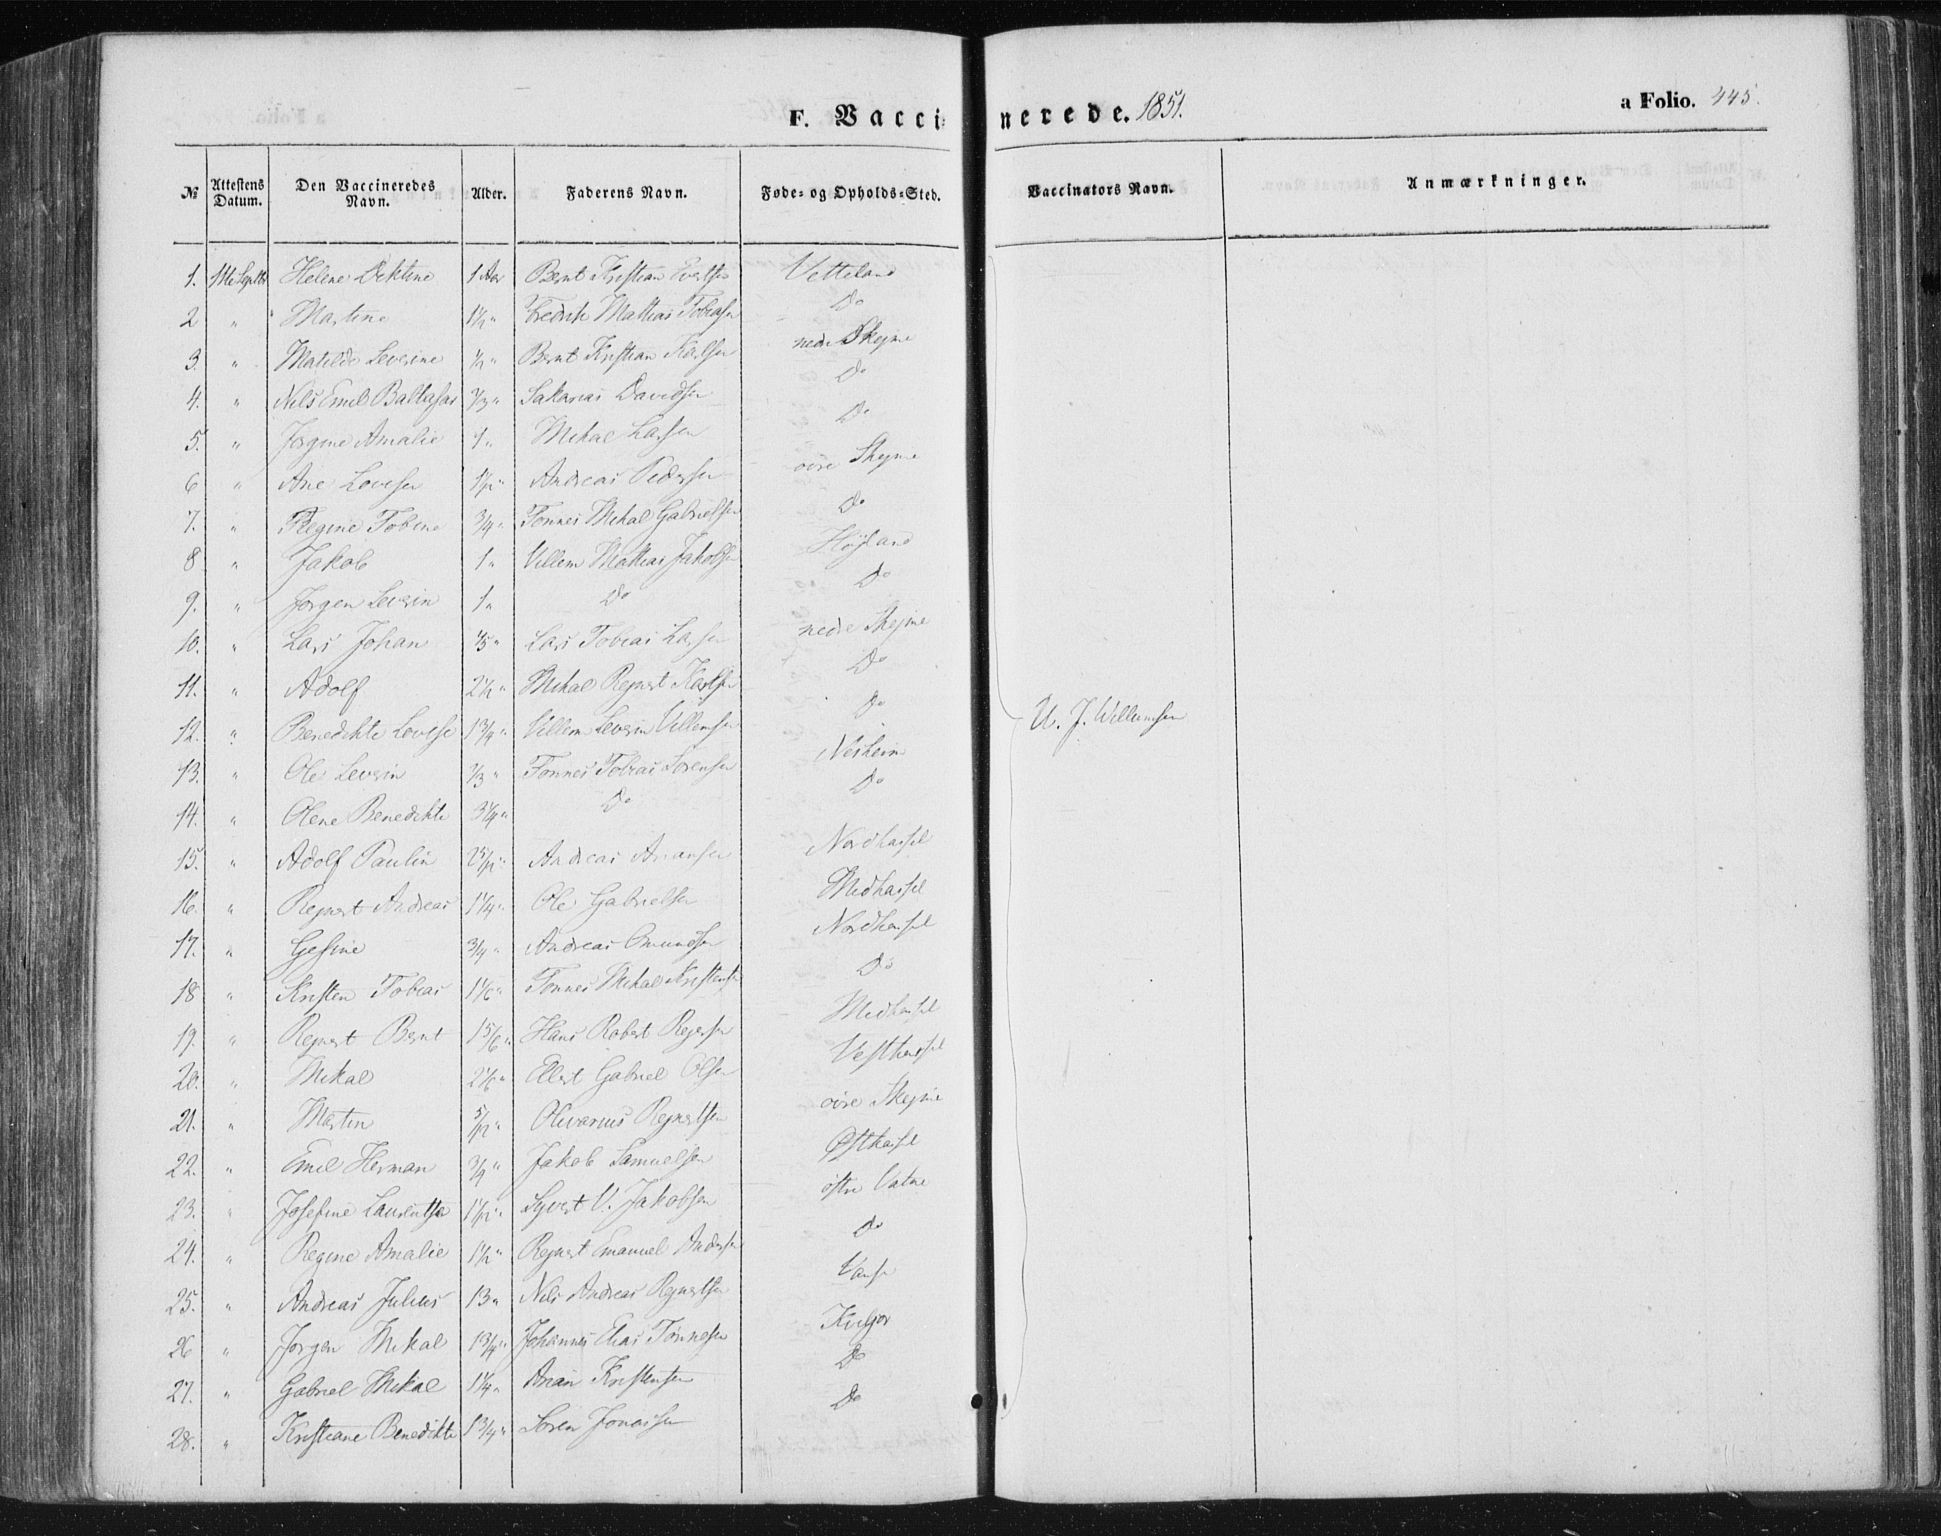 F. Vaccinerede. 1851. a Folio. 445.
№ Attestens Datum. Den Vaccineredes Navn. Alder. Faderens Navn. Føde- og Opholds-Sted. Vaccinators Navn. Anmærkninger.
1. Septbr Helene 1 Aar Bernt Kristian Evertsen Vetteland
2 " Martine 1½ " Fredrik Mathias Tobiasen Do
3. " Matilde Severine ½ " Bernt Kristian nedre Skejme
4. " Nils Emil Baltasar " Sakarias Davidsen Do
5. " Jørgine Amalie 1 " Mikal Larsen Do
6 " Ane Lovise " Andreas Pedersen øvre Skejme
7. " Regine Tobine ¾ " Tønnes Mikal Gabrielsen Do
8 " Jakob 1 " Villem Mathias Jakobsen Høyland
9. " Jørgen Severin 1 " Do Do
10. " Lars Johan " Lars Tobias Larsen nedre Skejme
11. " Adolf 2½ " Mikal Rejnert Do
12. " Benedikte Lovise 1¾ " Villem Severin Villemsen Do
13. " Ole Severin " Tønnes Tobias Sørensen Nesheim
14. " Olene Benedikte 3¼ " Do Do
15. " Adolf Paulin 25/12 " Andreas Ariansen Nordhassel
16. " Rejnert Andreas 1¼ " Ole Gabrielsen Midhassel
17. " Gesine ¾ " Andreas Omundsen Nordhassel
18 " Kristen Tobias 1 1/6 " Tønnes Mikal Kristensen Do
19. " Rejnert Bernt 1 5/6 " Hans Robert Rejersen Midhassel
20. " Mikal 2 1/6 " Ellert Gabriel Olsen Vesthassel
21. " Martin 5/12 " Olivarius Rejnertsen øvre Skejme
22. " Emil Herman ¾ " Jakob Samuelsen Østhassel
23. " Josefine Laurentse " Syvert V. Jakobsen østre Vatne
24. " Regine Amalie 1½ " Rejnert Emanuel Andersen Do
25. " Andreas Julius 13 " Nils Andreas Rejnertsen Vanse
26 " Jørgen Mikal 1¾ " Johannes Elias Tønnesen
27. " Gabriel Mikal 1¼ " Arian Kristensen Do
28. " Kristiane Benedikte 1¾ " Søren Jonassen Do
U. J. Willumsen